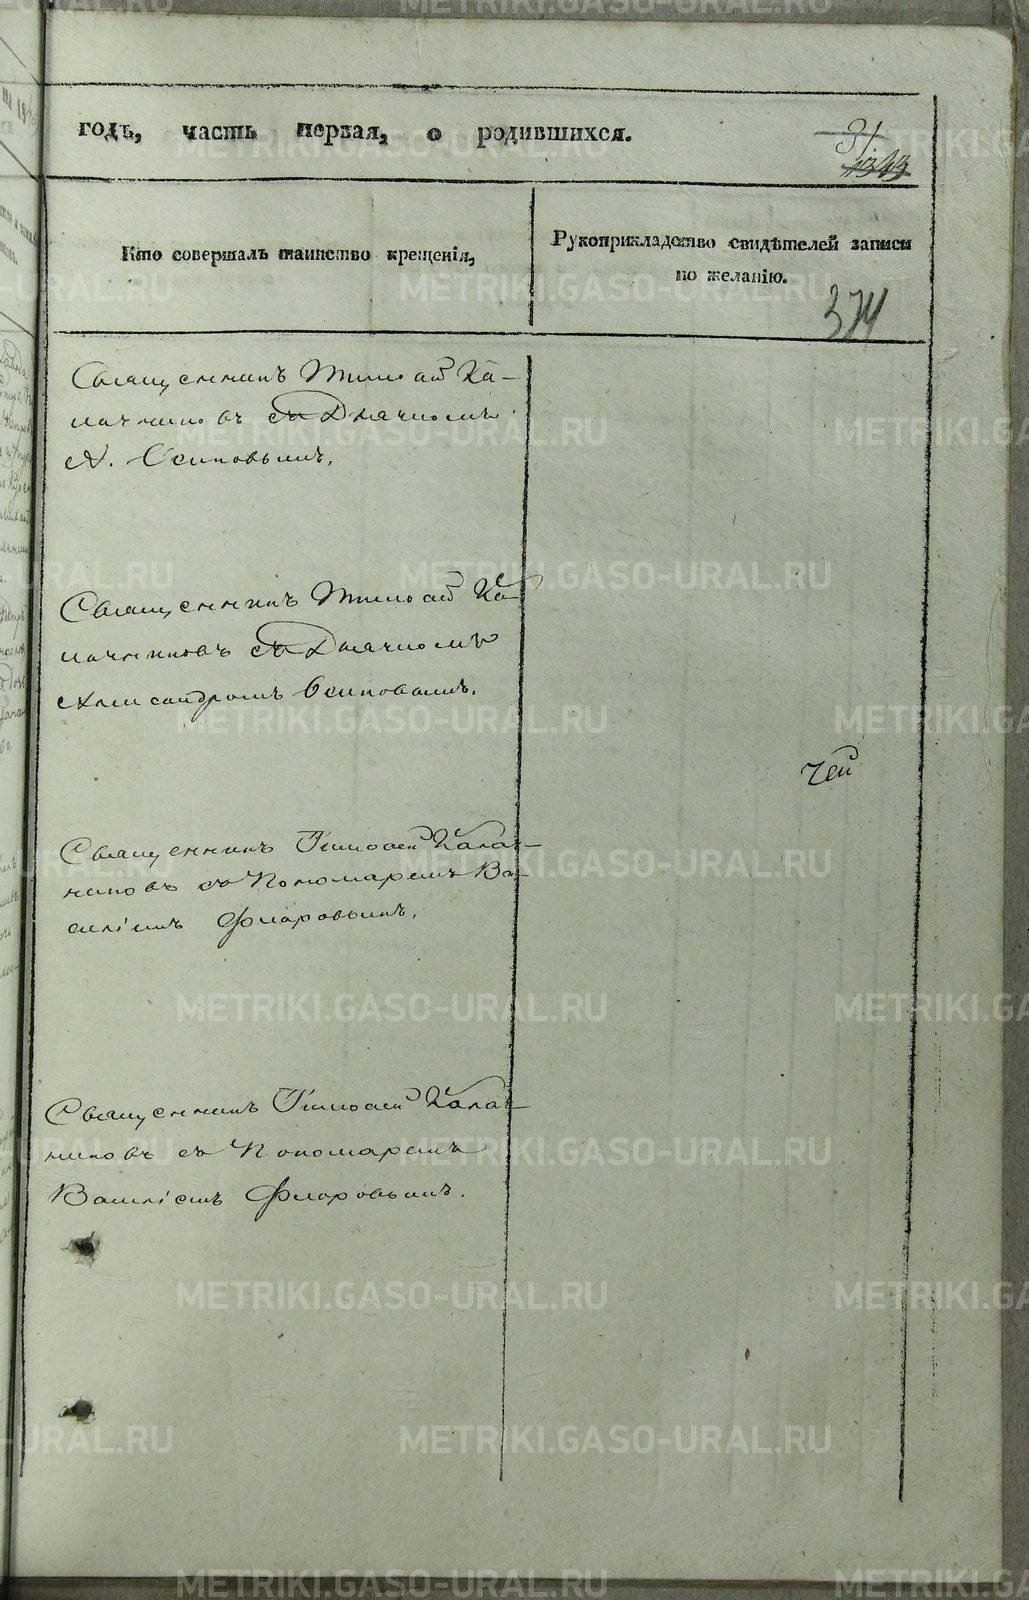 годъ, часть первая, о родившихся.
31
1343
Кто совершалъ таинство крещенія,
Рукоприкладство свидѣтелей записи
по желанію.
374
Священникъ Тимоѳей Ка-
лачниковъ съ Дьячкомъ
А. Осиповымъ.
Священникъ Тимоѳей Ка-
лачниковъ съ Дьячкомъ
Александромъ Осиповымъ.
Священникъ Тимоѳей Калач-
никовъ съ Пономаремъ Ва-
силіемъ Флоровымъ.
Священникъ Тимоѳей Калач-
никовъ съ Пономаремъ
Василіемъ Флоровымъ.
METRIKI.GASO-URAL.RU